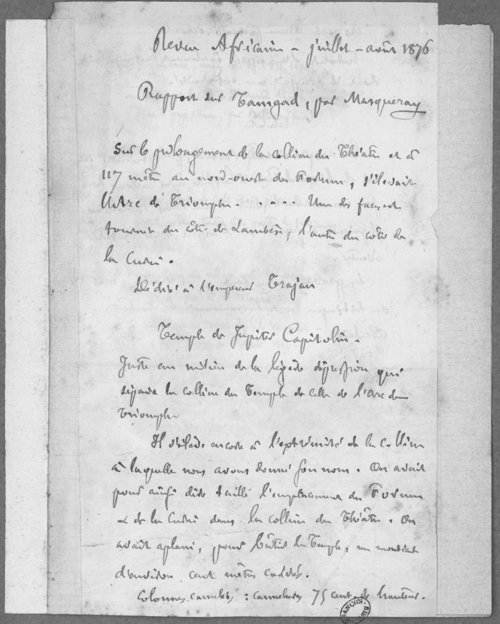 Revue Africaine - juillet - août 1876
Rapport sur Tamgad, par Masqueray
Sur le prolongement de la colline du Théâtre et à
117 mètres au nord-ouest du Forum, s'élevait
l'Arc de Triomphe. . . . . Une des faces est
tournée du côté de Lambèse, l'autre du côté de
la Curie.
Dédié à l'empereur Trajan
Temple de Jupiter Capitolin.
Juste au milieu de la légère dépression qui
sépare la colline du Temple de celle de l'Arc de
Triomphe
Il s'élève encore à l'extrémité de la colline
à laquelle nous avons donné son nom. On avait
pour ainsi dire taillé l'emplacement du Forum
et de la Curie dans la colline du Théâtre. On
avait aplani, pour bâtir le Temple, un
d'environ cent mètres carrés.
Colonnes cannelées : cannelures 75 cent. de hauteur.